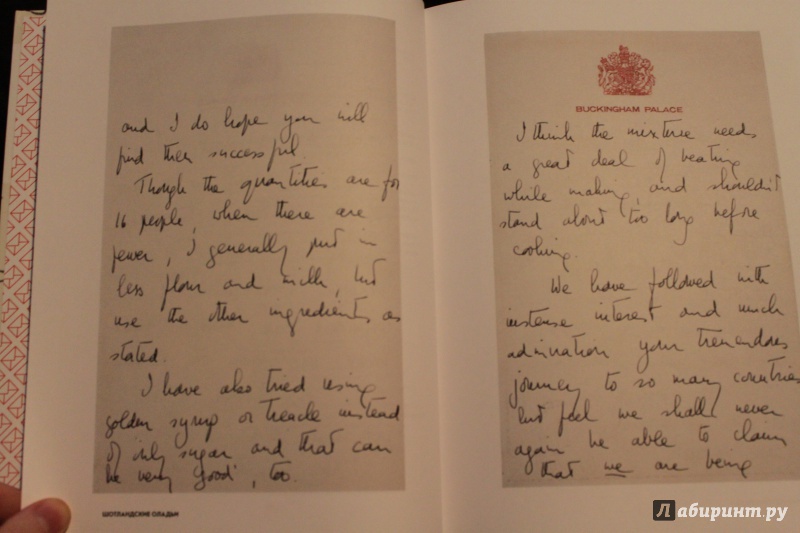 and I do hope you will
find them successful.
Though the quantities are for
16 people, when there are
fewer, I generally put in
less flour and milk, but
use the other ingredients as
stated.
I have also tried using
golden syrup or treacle instead
of only sugar and that can
be very good, too.
ШОТЛАНДСКИЕ ОЛАДЬИ
BUCKINGHAM PALACE
I think the mixture needs
a great deal of beating
while making, and shouldn't
stand about too long before
cooking.
We have followed with
intense interest and much
admiration your tremendous
journey to so many countries
but feel we shall never
again be able to claim
that we are being
Лабиринт.ру